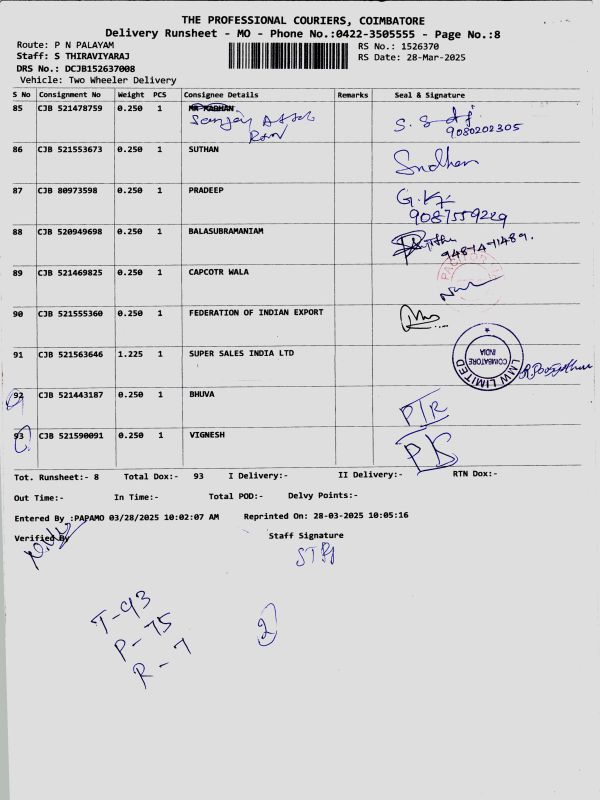 THE PROFESSIONAL COURIERS, COIMBATORE
Delivery Runsheet - MO - Phone No.:0422-3505555 - Page No.:8
Route: P N PALAYAM
Staff: S THIRAVIYARAJ
DRS No.: DCJB152637008
Vehicle: Two Wheeler Delivery
RS No.: 1526370
RS Date: 28-Mar-2025
S No Consignment No Weight PCS Consignee Details Remarks Seal & Signature
85 CJB 521478759 0.250 1
Sanjay
9080202305
86 CJB 521553673 0.250 1 SUTHAN
Sudhan
87 CJB 80973598 0.250 1 PRADEEP
G.K
9087559229
88 CJB 520949698 0.250 1 BALASUBRAMANIAM
89 CJB 521469825 0.250 1 CAPCOTR WALA
90 CJB 521555360 0.250 1 FEDERATION OF INDIAN EXPORT
91 CJB 521563646 1.225 1 SUPER SALES INDIA LTD
LMW LIMITED
COIMBATORE
INDIA
92 CJB 521443187 0.250 1 BHUVA
93 CJB 521590091 0.250 1 VIGNESH
Tot. Runsheet:- 8 Total Dox:- 93 I Delivery:- II Delivery:- RTN Dox:-
Out Time:- In Time:- Total POD:- Delvy Points:-
Entered By :PAPAMO 03/28/2025 10:02:07 AM Reprinted On: 28-03-2025 10:05:16
Verified By Staff Signature
T-93
P-75
R-7
2